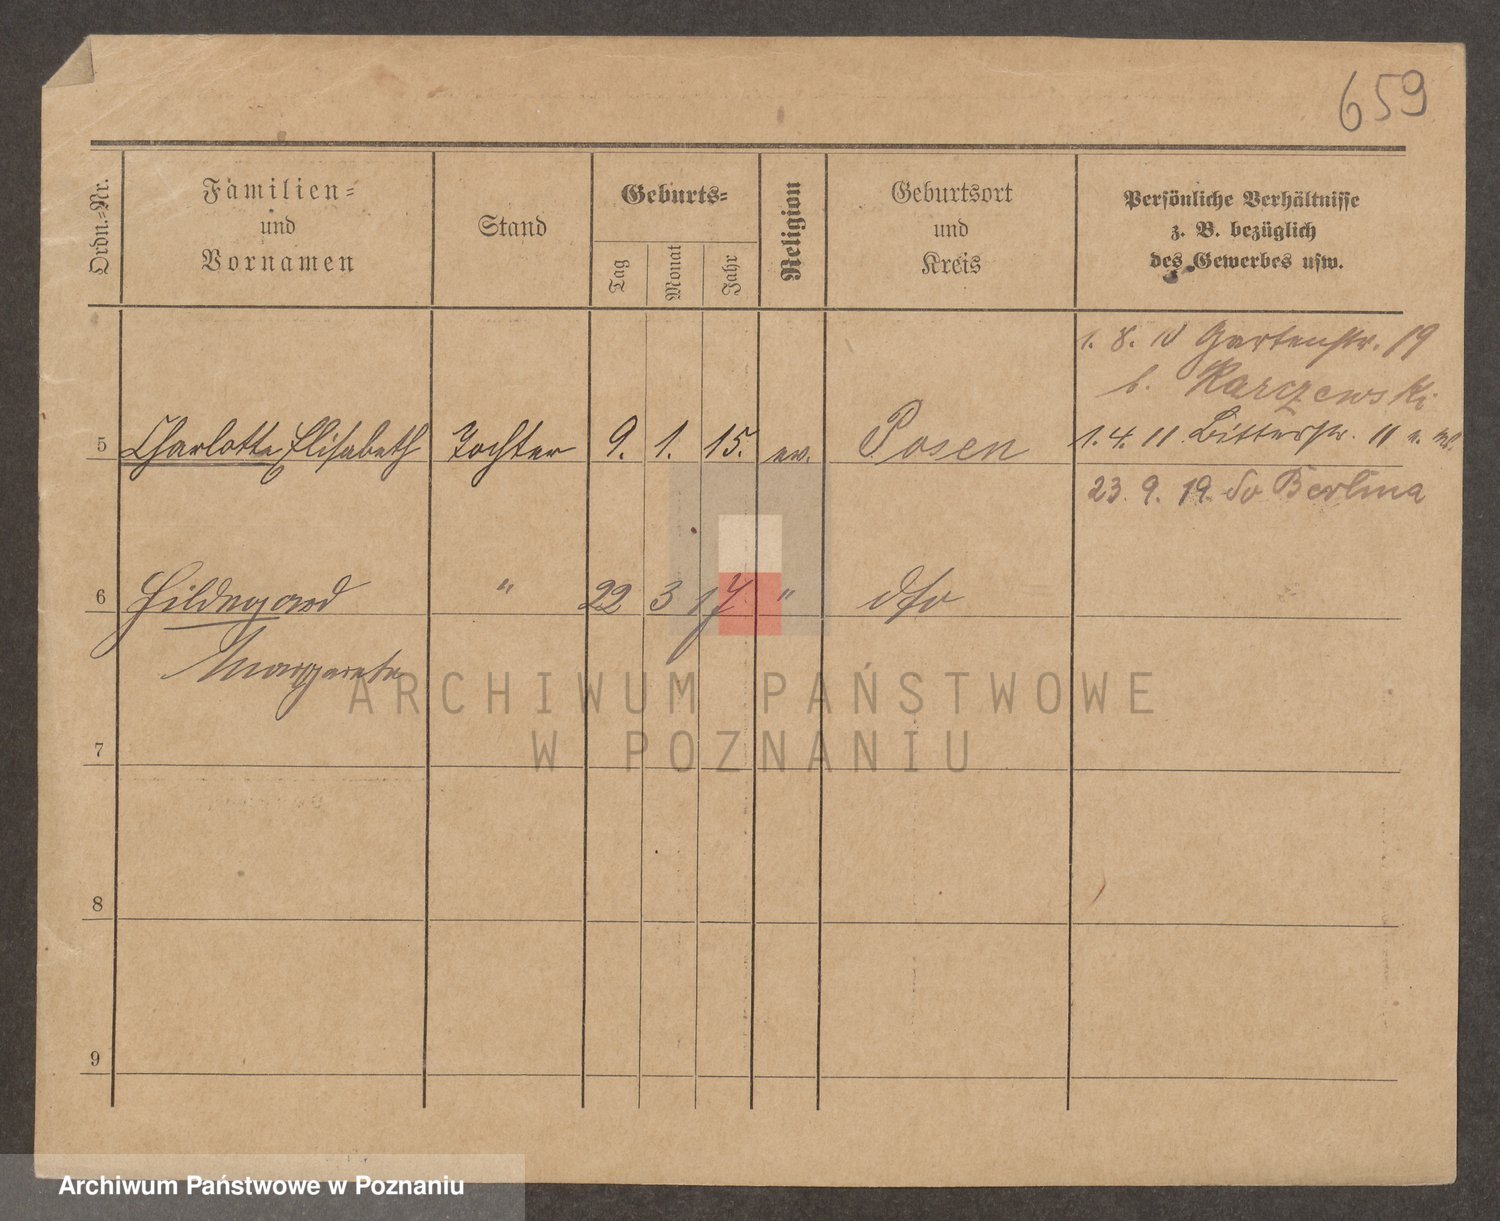 659
Ordn.-Nr.
Familien-
und
Vornamen
Stand
Geburts-
Tag
Monat
Jahr
Religion
Geburtsort
und
Kreis
Persönliche Verhältnisse
z. B. bezüglich
des Gewerbes usw.
1. 8. Gartenstr. 19
b. Karczewski
5 Charlotte Elisabeth Tochter 9. 1. 15. ev. Posen 1. 4. 11 Bitterstr. 11
23. 9. 19. Berlina
6 Hildegard " 22 3 17 " dto
Margarete
7
8
9
ARCHIWUM PAŃSTWOWE
W POZNANIU
Archiwum Państwowe w Poznaniu